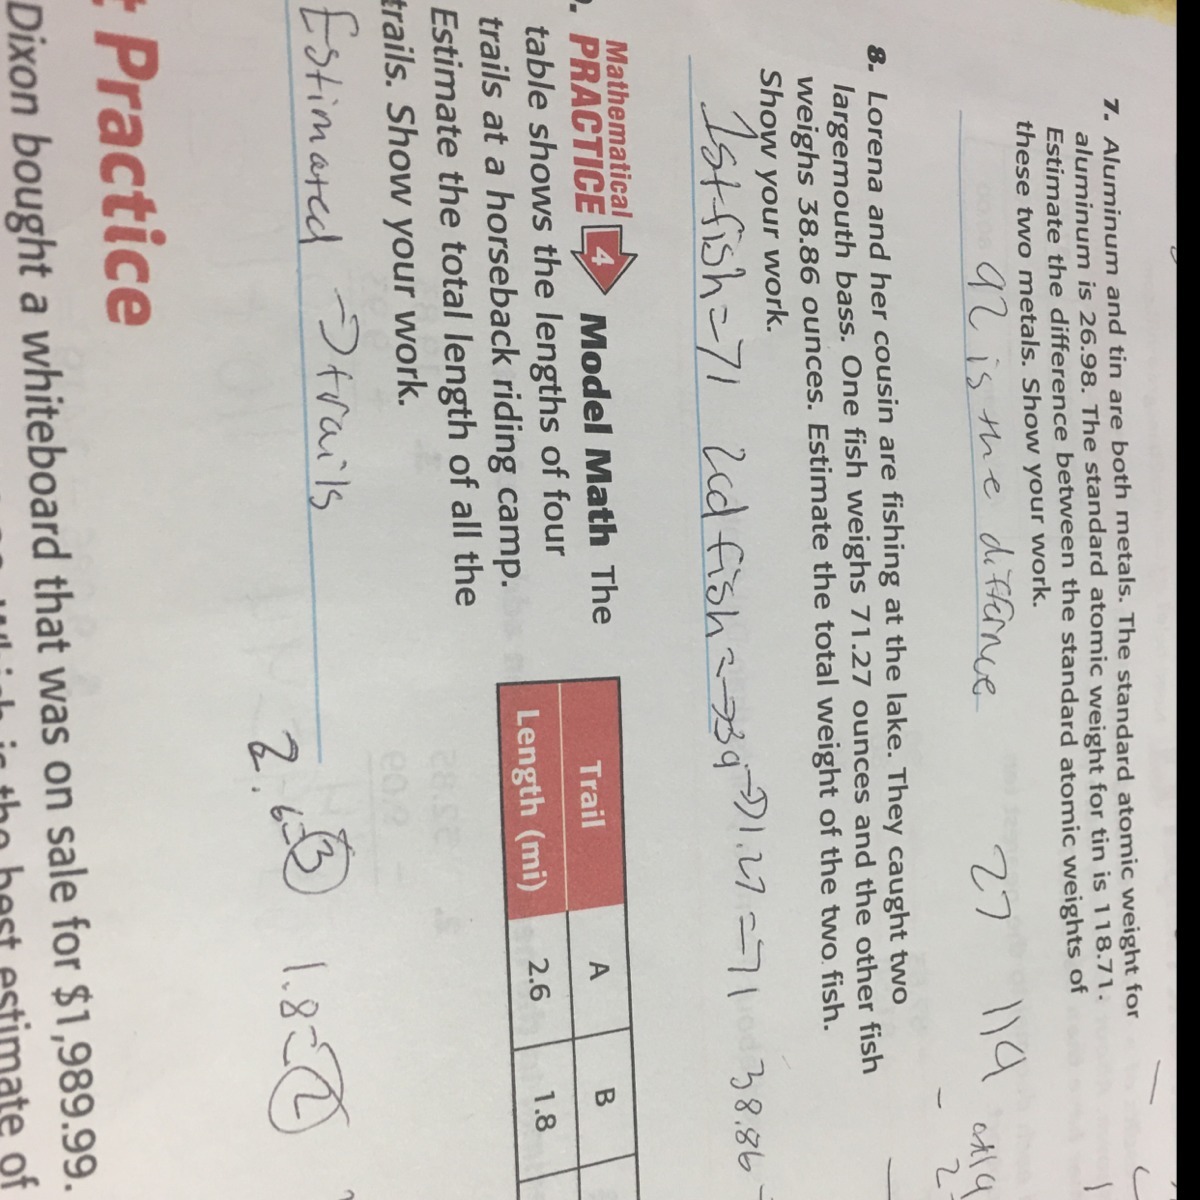 7. Aluminum and tin are both metals. The standard atomic weight for
aluminum is 26.98. The standard atomic weight for tin is 118.71.
Estimate the difference between the standard atomic weights of
these two metals. Show your work.
92 is the differnce 27 119
8. Lorena and her cousin are fishing at the lake. They caught two
largemouth bass. One fish weighs 71.27 ounces and the other fish
weighs 38.86 ounces. Estimate the total weight of the two fish.
Show your work.
1st fish = 71 2cd fish = 39 → 71.27 = 71 38.86
Mathematical
PRACTICE 4 Model Math The
table shows the lengths of four
trails at a horseback riding camp.
Estimate the total length of all the
trails. Show your work.
Trail A B
Length (mi) 2.6 1.8
Estimated → trails
2.6 = 3 1.8 = 2
Practice
Dixon bought a whiteboard that was on sale for $1,989.99.
is the best estimate of